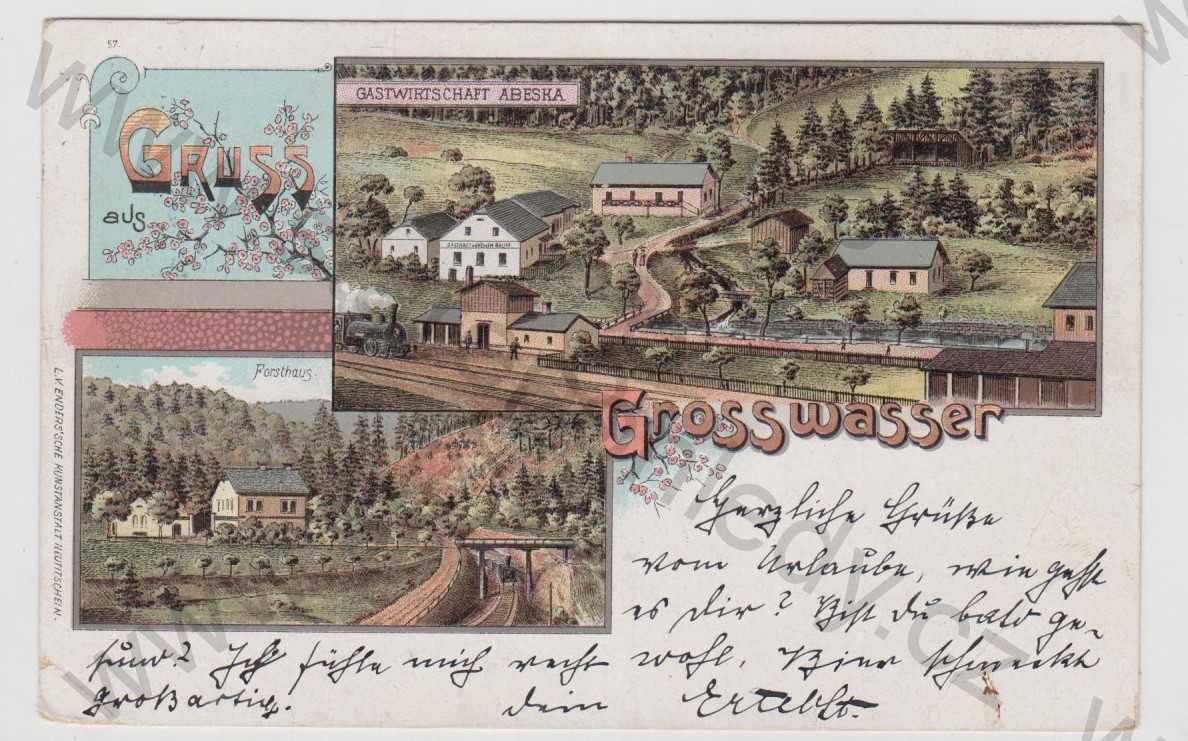 57.
GRUSS
aus
GASTWIRTSCHAFT ABESKA
Forsthaus.
Grosswasser
L. V. ENDERS'SCHE KUNSTANSTALT NEUTITSCHEIN.
Herzliche Grüße
vom Urlaube, wie geht
es dir? Bist du bald ge-
sund? Ich fühle mich recht wohl, Bier schmeckt
großartig. dein